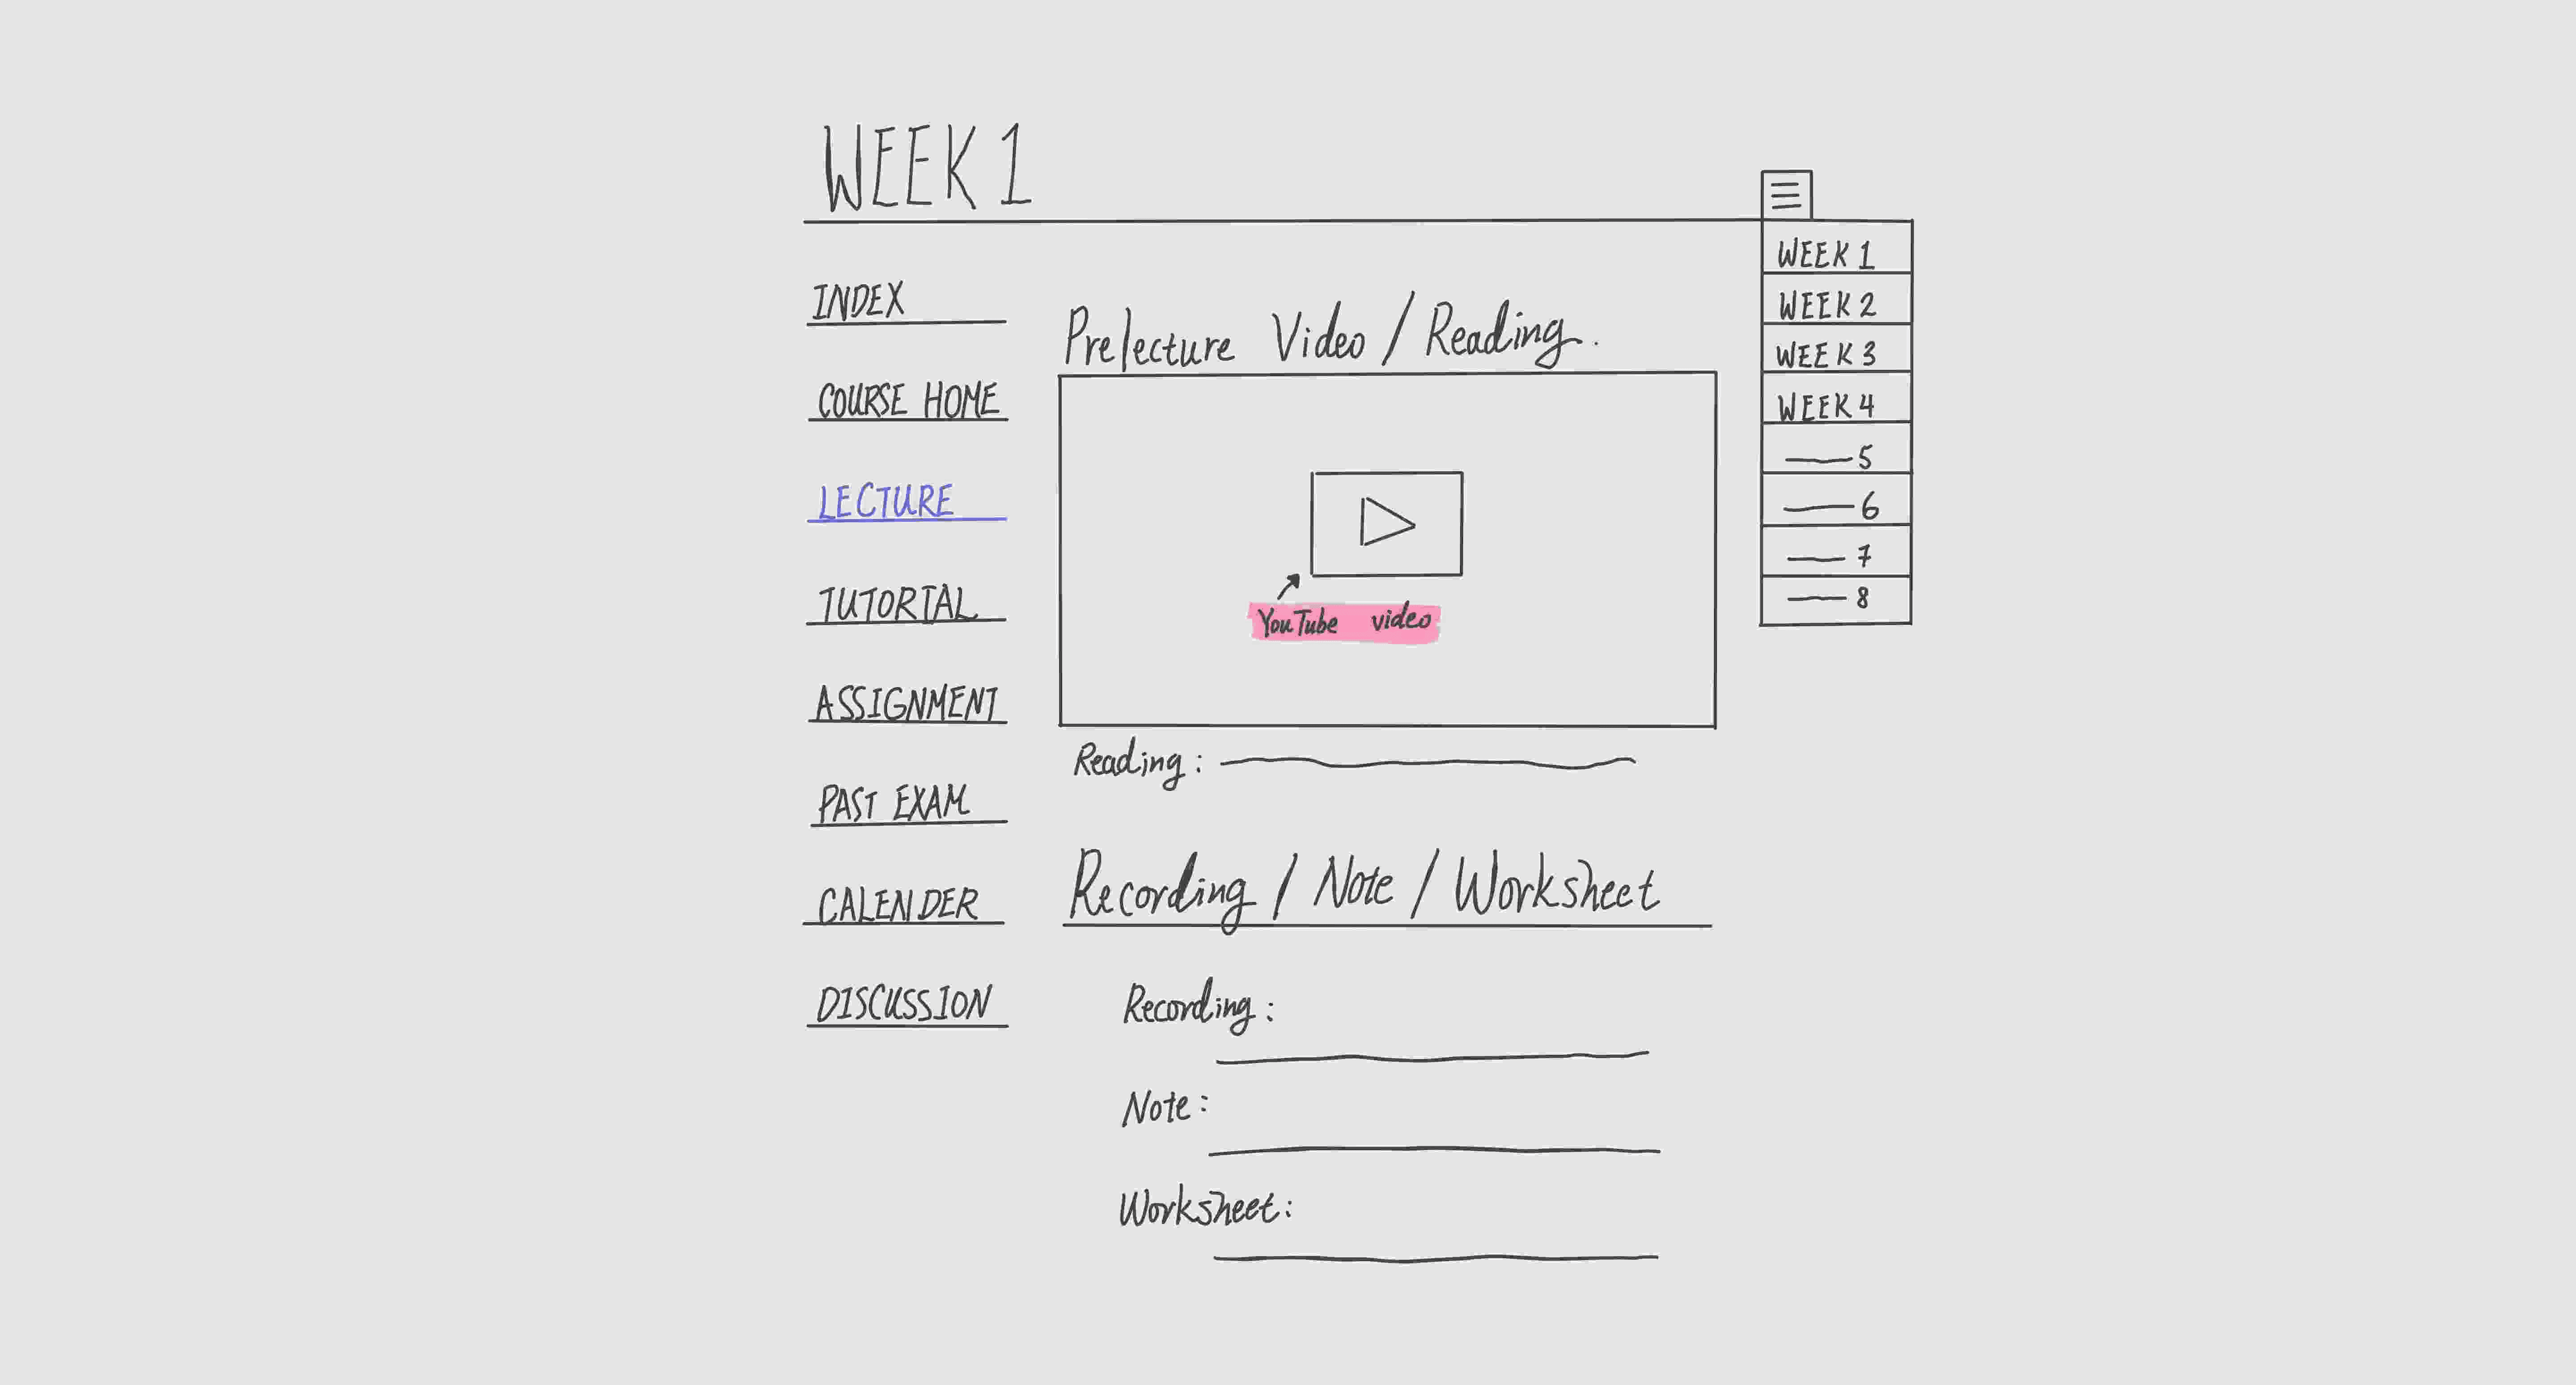 WEEK 1
INDEX
COURSE HOME
LECTURE
TUTORIAL
ASSIGNMENT
PAST EXAM
CALENDER
DISCUSSION
Prelecture Video / Reading.
YouTube video
Reading:
Recording / Note / Worksheet
Recording:
Note:
Worksheet:
WEEK 1
WEEK 2
WEEK 3
WEEK 4
5
6
7
8